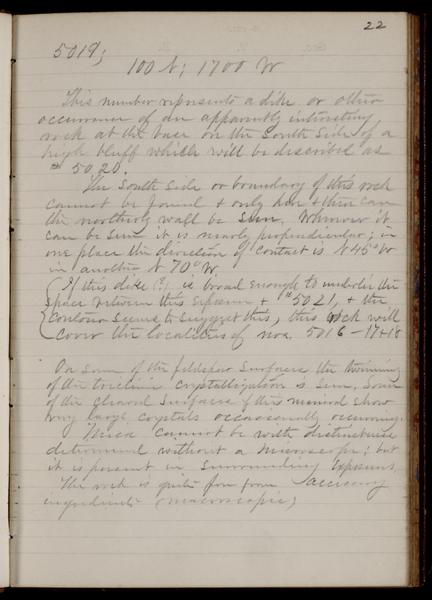 22
5019;
100 N; 1700 W
This number represents a dike or other
occurrence of an apparently intrusive
rock at the base on the South Side of a
high bluff which will be described as
# 5020.
The South Side or boundary of this rock
cannot be found & only here & there can
the northerly wall be seen. Wherever it
can be seen it is nearly perpendicular; in
one place the direction of contact is N 45° W
in another N 70° W.
If this dike (?) is broad enough to underlie the
space between this exposure & #5021, & the
contour seems to suggest this, this rock will
cover the localities of nos. 5016-17 & 18
On some of the feldspar surfaces the twinning
of the triclinic crystallization is seen, some
of the cleaved surfaces of this mineral show
very large crystals occasionally occurring.
Mica cannot be with distinctness
determined without a microscope; but
it is present in surrounding exposures.
The rock is quite free from accessory
ingredients (macroscopic)